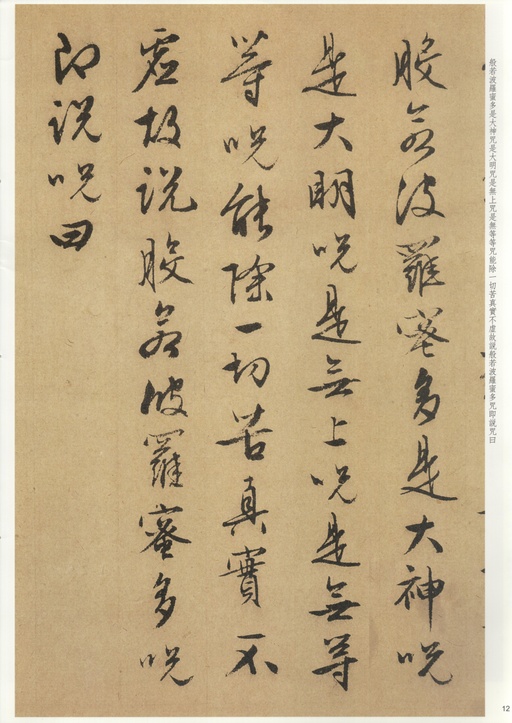 般若波羅蜜多是大神呪
是大明呪是無上呪是無等
等呪能除一切苦真實不
虛故說般若波羅蜜多呪
即說呪曰
般若波羅蜜多是大神咒是大明咒是無上咒是無等等咒能除一切苦真實不虛故說般若波羅蜜多咒即說咒曰
12